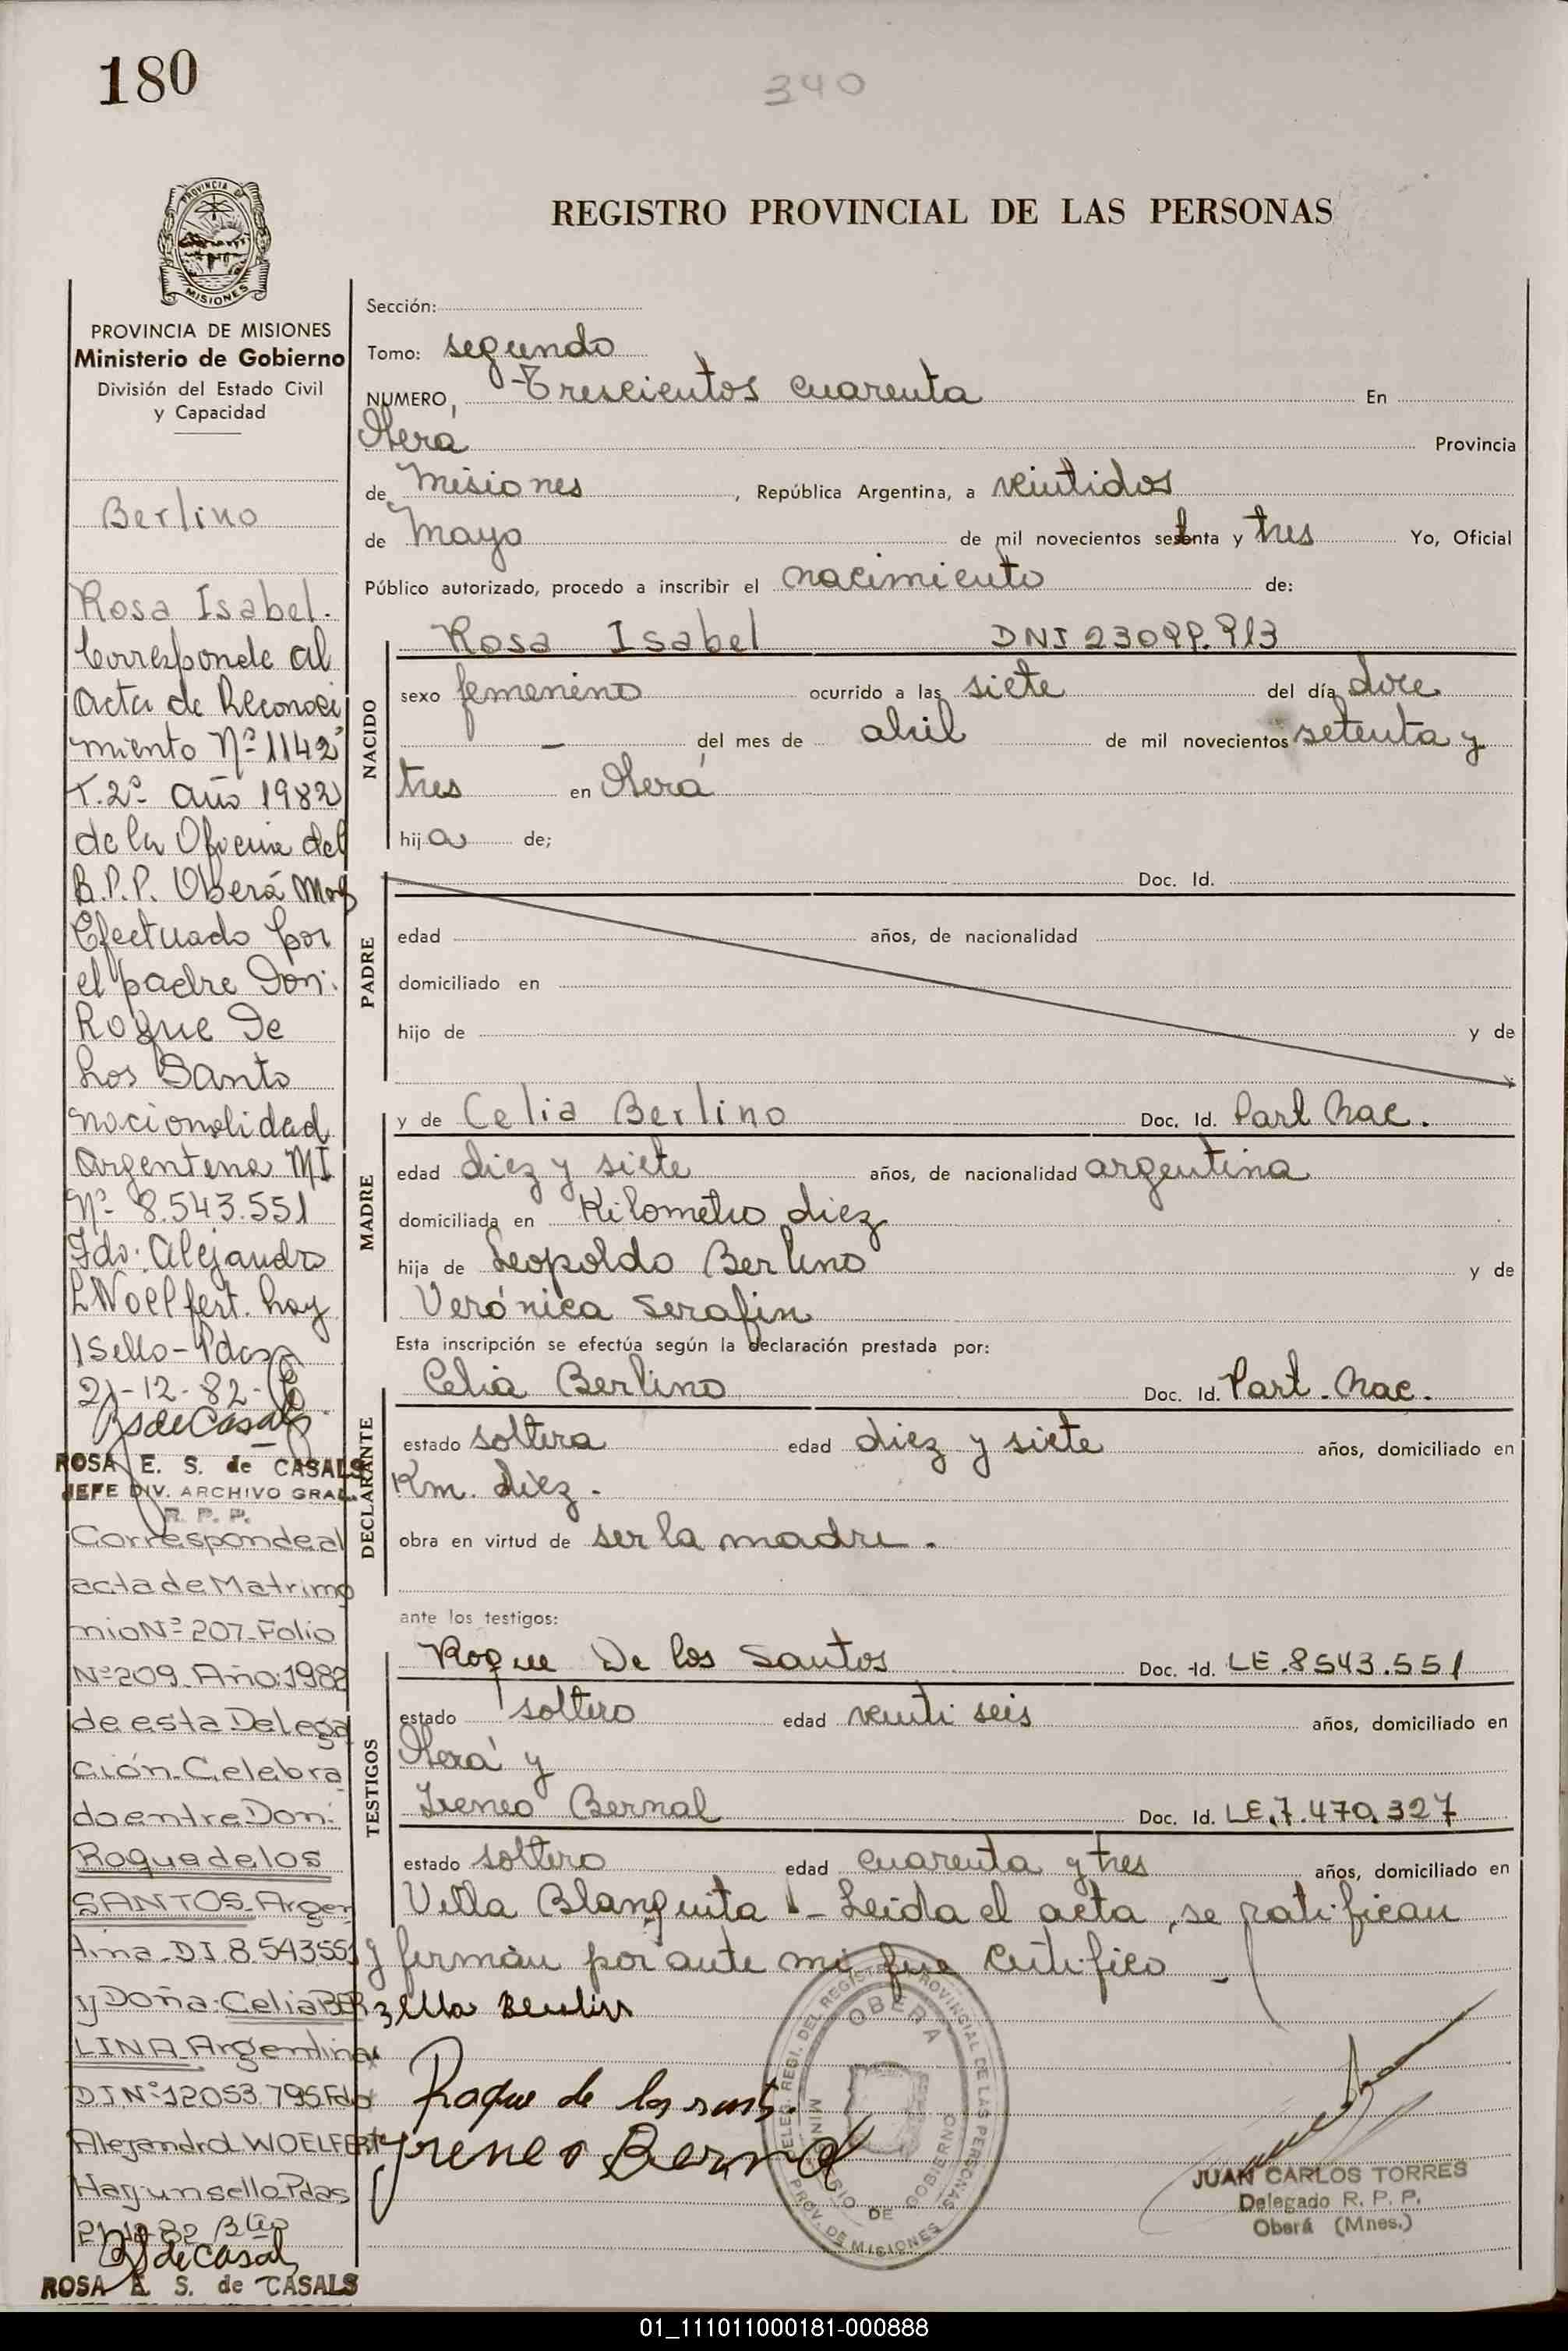 180
340
PROVINCIA DE
MISIONES
REGISTRO PROVINCIAL DE LAS PERSONAS
PROVINCIA DE MISIONES
Ministerio de Gobierno
División del Estado Civil
y Capacidad
Berlino
Rosa Isabel.
Corresponde al
acta de Reconoci
miento Nº 1142
T. 2º año 1982
de la Oficina del
R.P.P. Oberá Mnes
Efectuado por
el padre Don:
Roque De
Los Santo
nacionalidad
Argentena MI
Nº 8.543.551
Fdo: Alejandro
L Woelfert. hay
1 Sello - Pdas
21-12-82-
RSdeCasals
ROSA E. S. de CASALS
JEFE DIV. ARCHIVO GRAL.
R. P. P.
Corresponde al
acta de Matrimo
nio Nº 207 - Folio
Nº 209 - Año: 1982
de esta Delega
ción - Celebra
do entre Don:
Roque de los
SANTOS - Argen
tina - D.I. 8.543551
y Doña: Celia BER
LINA Argentina
D.I Nº 12053.795 Fdo
Alejandro L WOELFERT
Hay un sello Pdas
21-12-82
RSdeCasals
ROSA E. S. de CASALS
Sección:
Tomo: segundo
NUMERO, Trescientos cuarenta En
Oberá Provincia
de Misiones , República Argentina, a veintidos
de Mayo de mil novecientos setenta y tres Yo, Oficial
Público autorizado, procedo a inscribir el nacimiento de:
NACIDO
Rosa Isabel DNI 23099.913
sexo femenino ocurrido a las siete del día doce
— del mes de abril de mil novecientos setenta y
tres en Oberá
hija de;
PADRE
Doc. Id.
edad años, de nacionalidad
domiciliado en
hijo de y de
MADRE
y de Celia Berlino Doc. Id. Part Nac.
edad diez y siete años, de nacionalidad argentina
domiciliada en Kilometro diez
hija de Leopoldo Berlino y de
Verónica Serafin
Esta inscripción se efectúa según la declaración prestada por:
DECLARANTE
Celia Berlino Doc. Id. Part. Nac.
estado soltera edad diez y siete años, domiciliado en
Km. diez.
obra en virtud de ser la madre.
ante los testigos:
TESTIGOS
Roque De los Santos Doc. Id. LE. 8543.551
estado soltero edad veinti seis años, domiciliado en
Oberá y
Ireneo Bernal Doc. Id. LE. 7.470.327
estado soltero edad cuarenta y tres años, domiciliado en
Villa Blanquita - Leída el acta, se ratifican
y firman por ante mi que certifico -
Roque de los sants.
Yreneo Bernal
DELEG. REGI. DEL REGISTRO PROVINCIAL DE LAS PERSONAS
OBERA
MINISTERIO DE GOBIERNO
PROV. DE MISIONES
JUAN CARLOS TORRES
Delegado R. P. P.
Oberá (Mnes.)
01_111011000181-000888